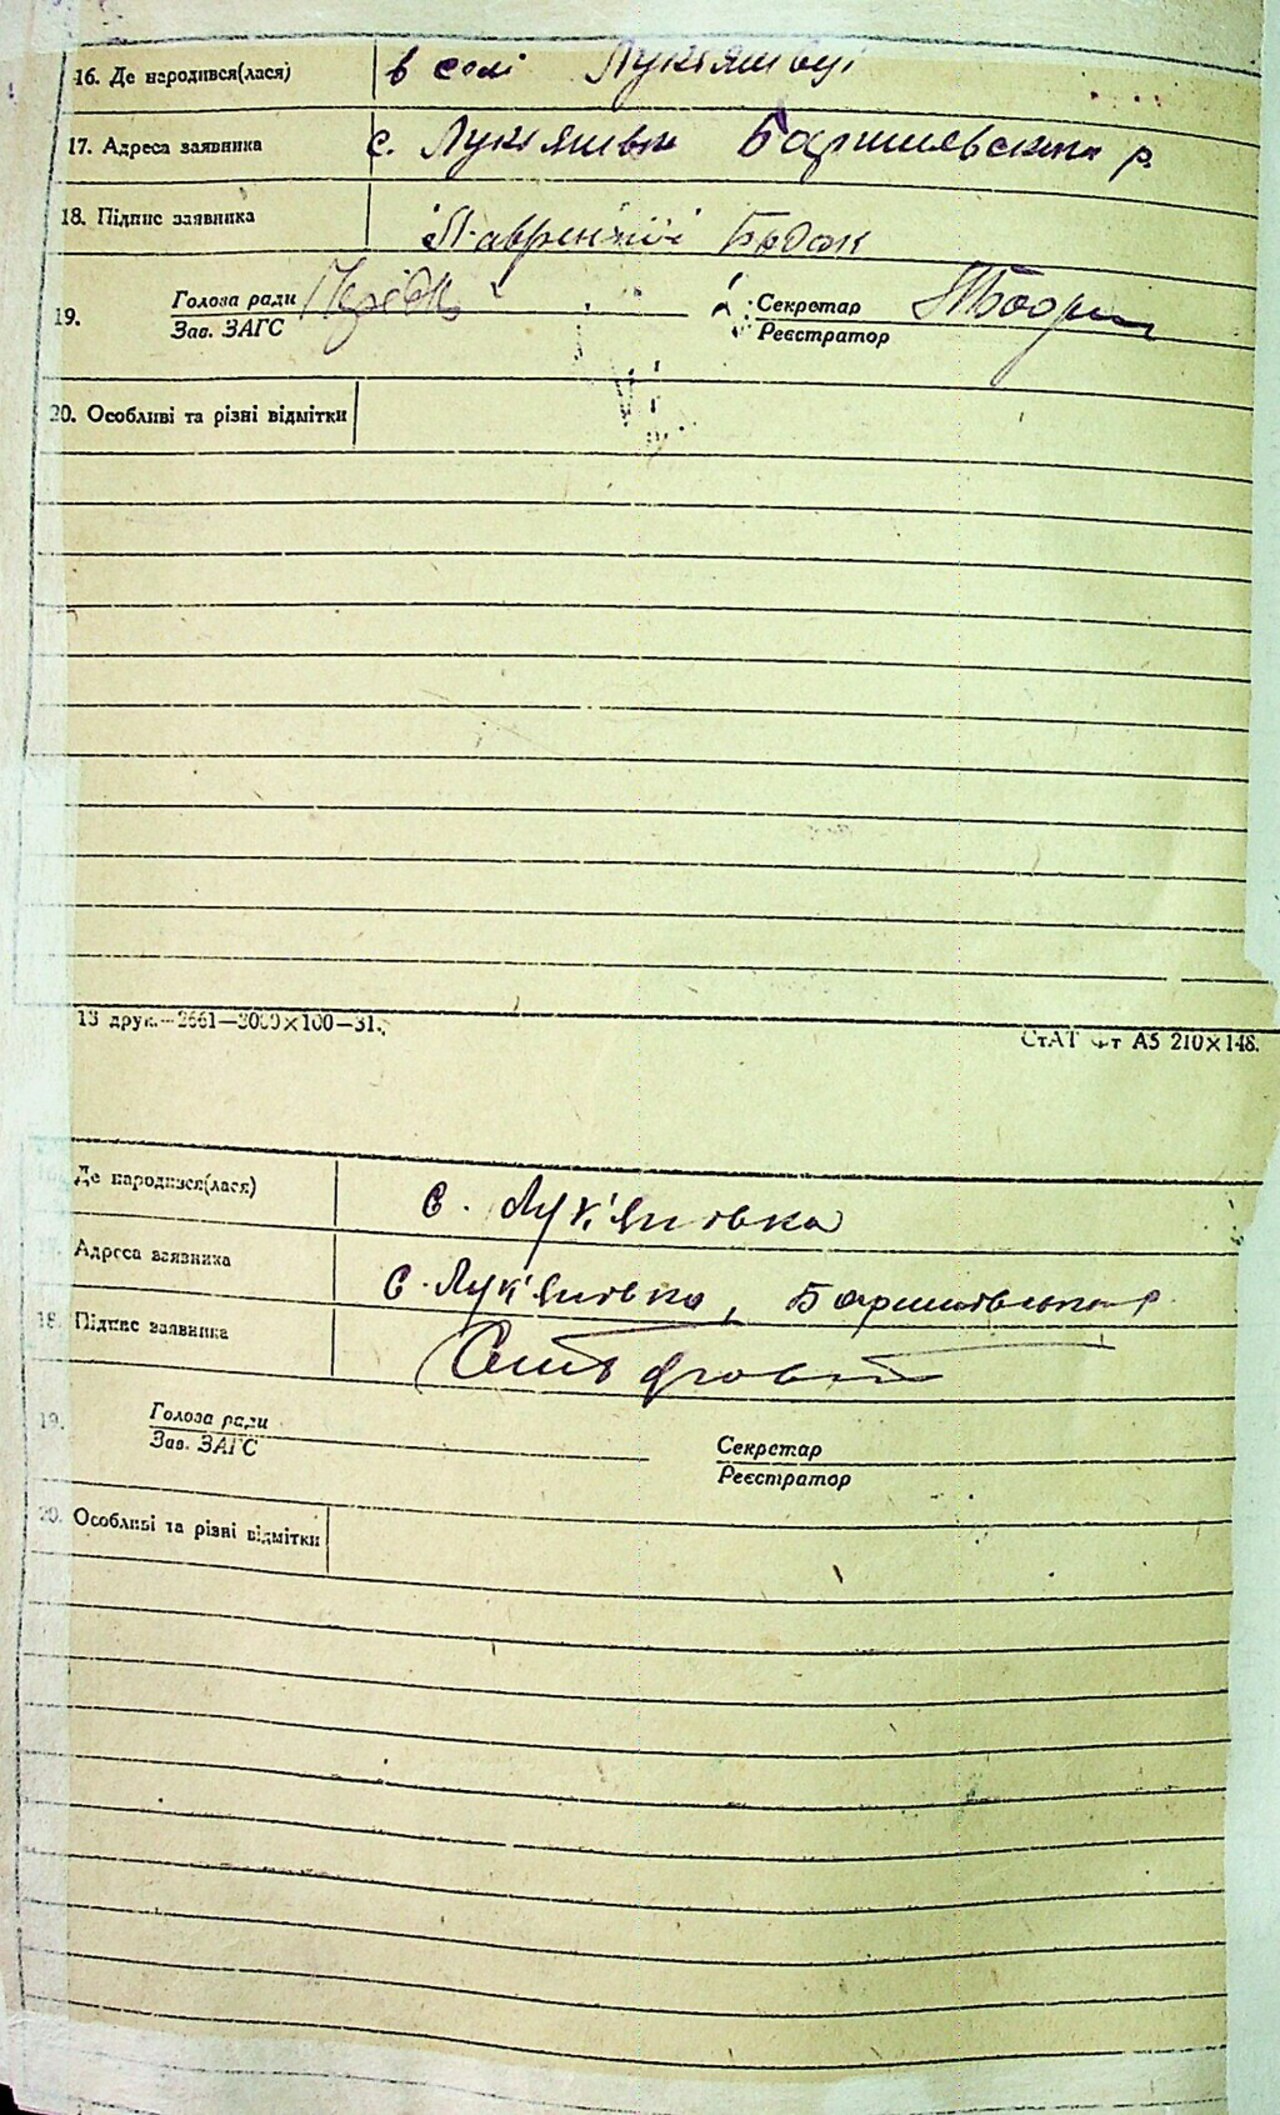 16. Де народився(лася) в селі Лукіяшвці
17. Адреса заявника с. Лукіяшвк Баришевського р.
18. Підпис заявника Лаврентій Бодак
19. Голова ради Секретар
Зав. ЗАГС Реєстратор
20. Особливі та різні відмітки
13 друк.—2661—3000×100—31.
СтАТ фт А5 210×148.
Де народився(лася) с. Лук'янівка
Адреса заявника с. Лук'янівка, Баришівського р
18. Підпис заявника
19. Голова ради Секретар
Зав. ЗАГС Реєстратор
20. Особливі та різні відмітки